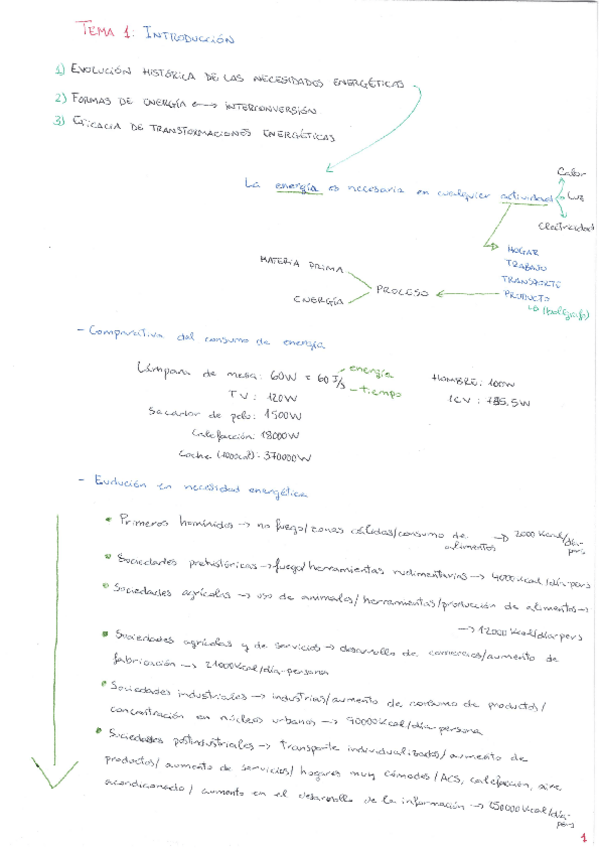 TEMA 1: INTRODUCCIÓN
1) EVOLUCIÓN HISTÓRICA DE LAS NECESIDADES ENERGÉTICAS
2) FORMAS DE ENERGÍA ↔ INTERCONVERSIÓN
3) EFICACIA DE TRANSFORMACIONES ENERGÉTICAS
Calor
La energía es necesaria en cualquier actividad Luz
electricidad
HOGAR
TRABAJO
TRANSPORTE
MATERIA PRIMA
ENERGÍA PROCESO ← PRODUCTO
- Comparativa del consumo de energía
Lámpara de mesa: 60W = 60 J/s energía HOMBRE: 100W
tiempo
TV: 120W 1CV: 735.5W
Secador de pelo: 1500W
Calefacción: 18000W
Coche: 370000W
- Evolución en necesidad energética
• Primeros homínidos → no fuego/zonas cálidas/consumo de alimentos → 2000 Kcal/día-pers
• Sociedades prehistóricas → fuego/herramientas rudimentarias → 4000Kcal/día-pers
• Sociedades agrícolas → uso de animales/herramientas/producción de alimentos →
→ 12000Kcal/día-pers
• Sociedades agrícolas y de servicios → desarrollo de comercios/aumento de
fabricación → 21000Kcal/día-persona
• Sociedades industriales → industrias/aumento de consumo de productos/
concentración en núcleos urbanos → 90000Kcal/día-persona
• Sociedades postindustriales → transporte individualizado/aumento de
productos/aumento de servicios/hogares muy cómodos/ACS, calefacción, aire
acondicionado/aumento en el desarrollo de la información → 250000Kcal/día-pers
1